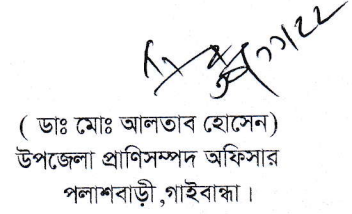 ( ডাঃ মোঃ আলতাব হোসেন)
উপজেলা প্রাণিসম্পদ অফিসার
পলাশবাড়ী ,গাইবান্ধা ।